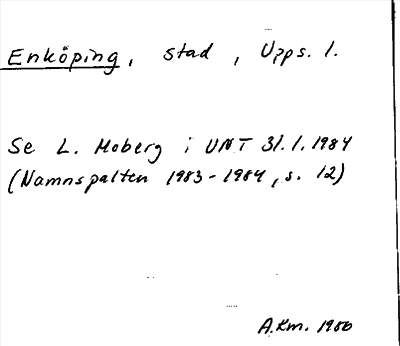 Enköping, stad, Upps. l.
Se L. Moberg i UNT 31.1.1984
(Namnspalten 1983-1984, s. 12)
A.Km. 1986